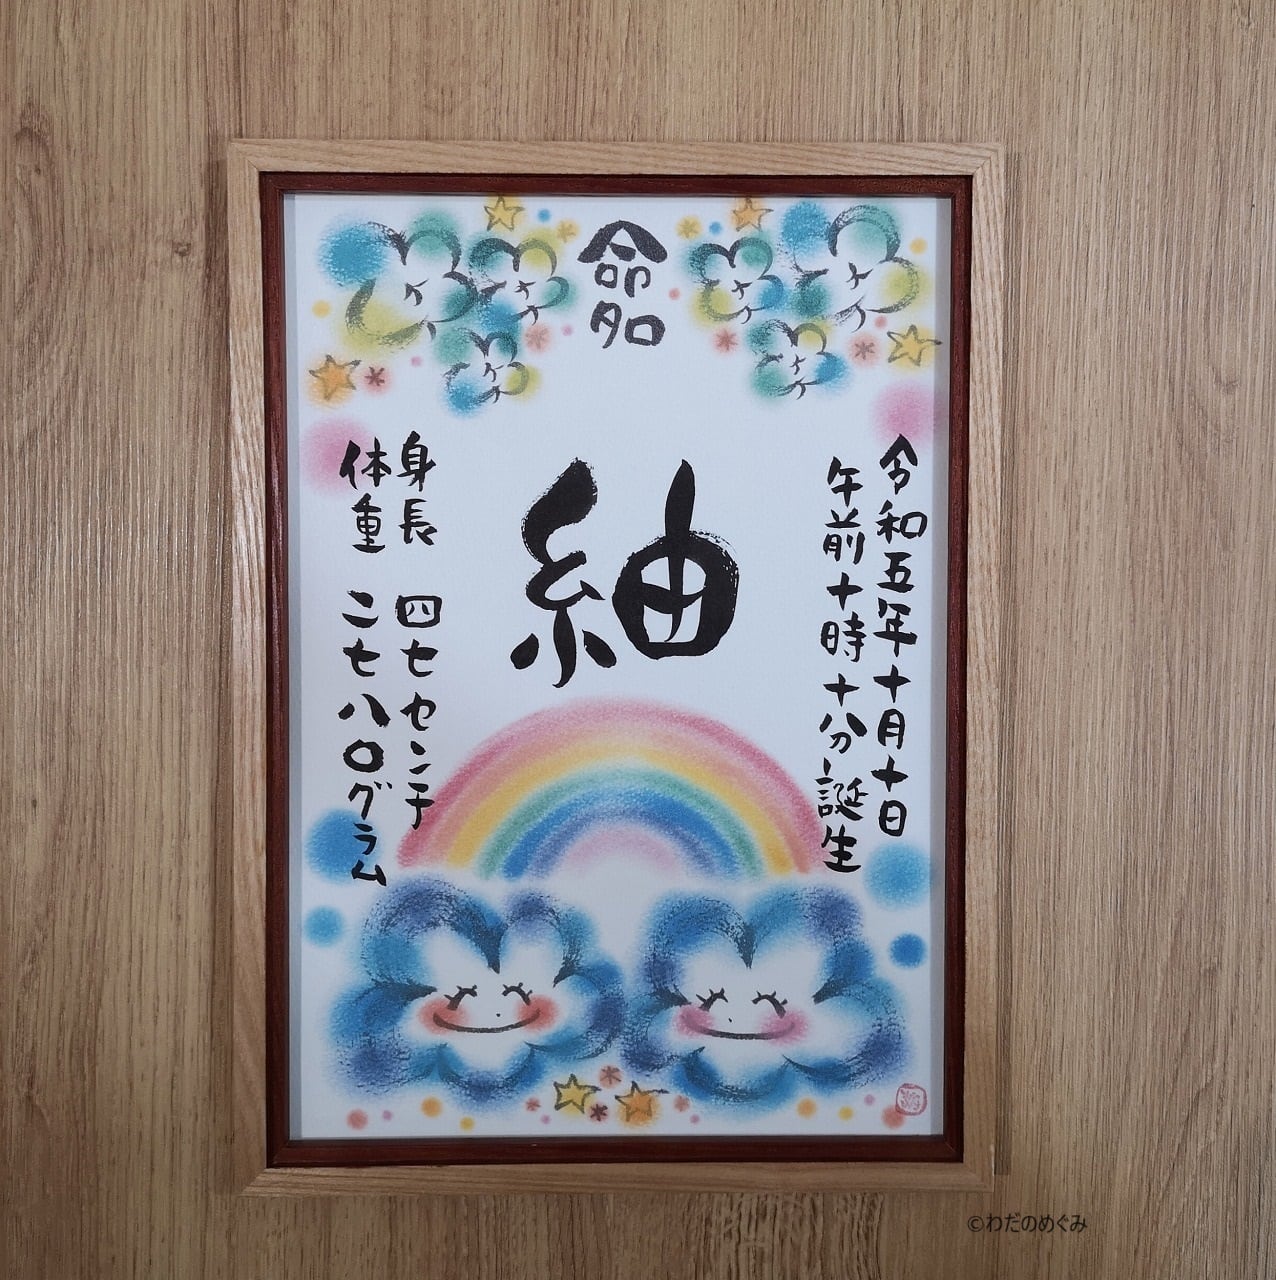 命名
令和五年十月十日
午前十時十八分誕生
紬
身長 四七センチ
体重 二七八〇グラム
©わだのめぐみ